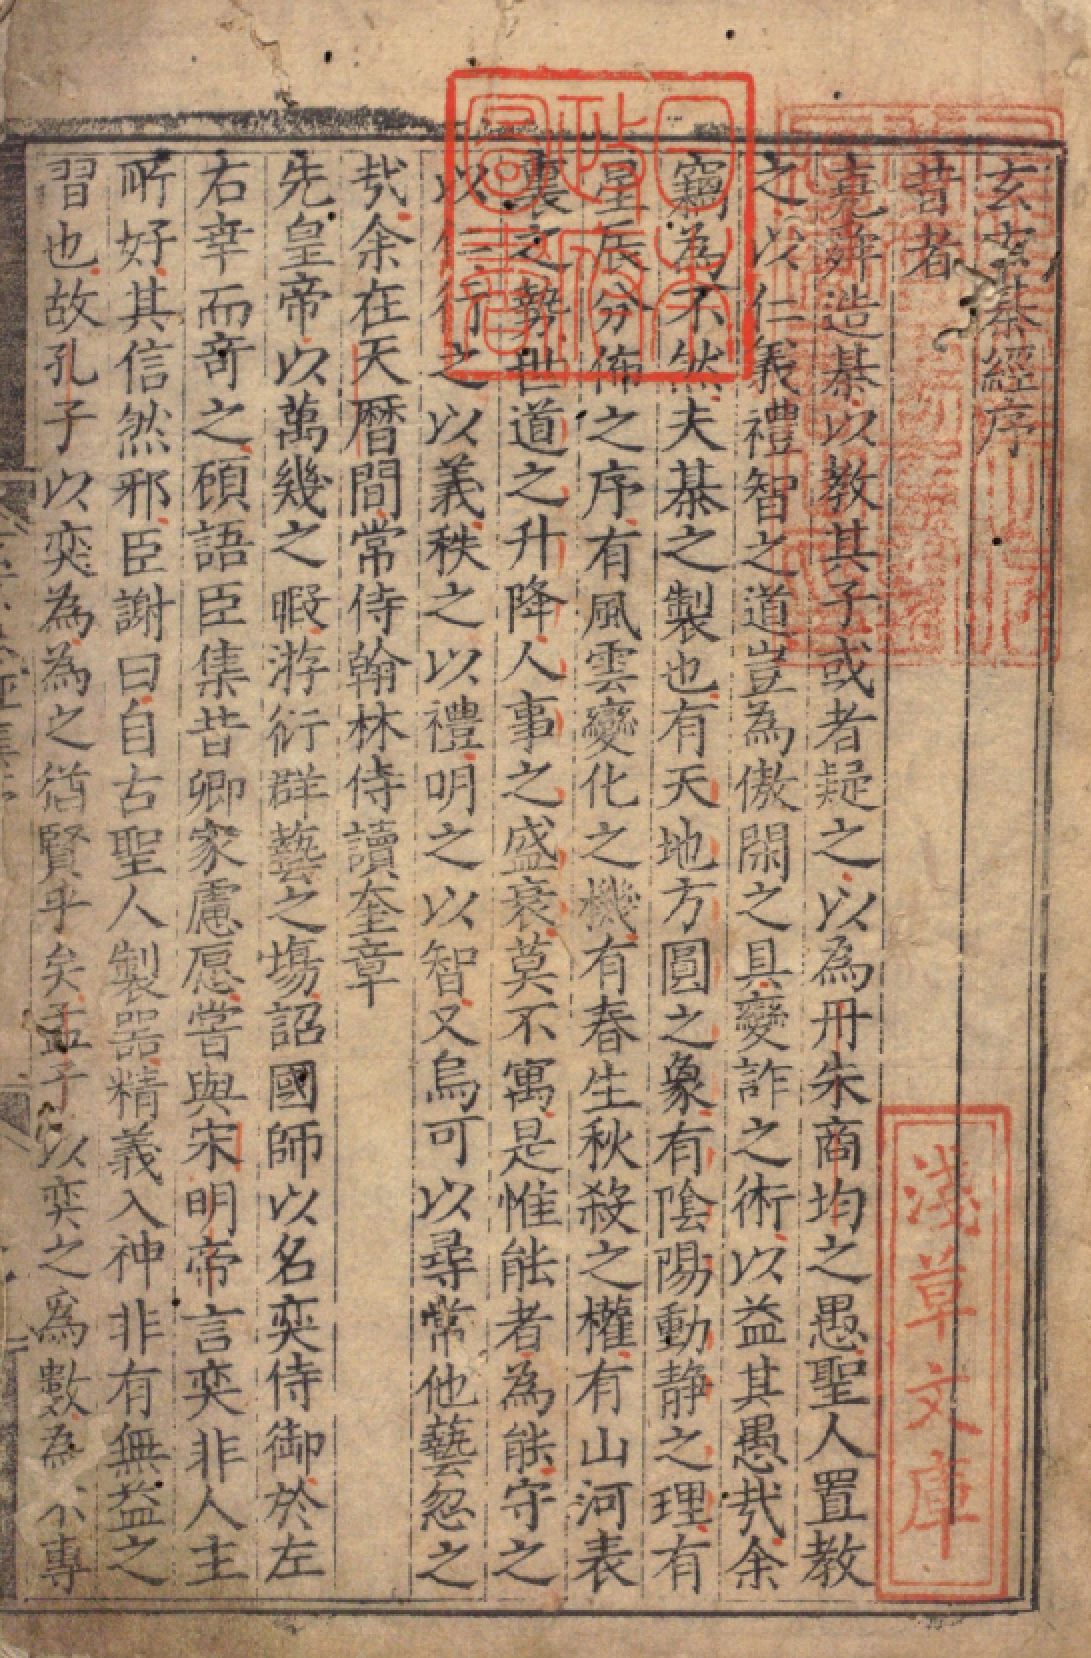 玄玄棊經序
昔者
堯舜造棊以教其子或者疑之以為丹朱商均之愚聖人置教
之以仁義禮智之道豈為傲閑之具變詐之術以益其愚㢤余
竊為不然夫棊之製也有天地方圓之象有陰陽動静之理有
星辰分佈之序有風雲變化之機有春生秋殺之權有山河表
裏之勢世道之升降人事之盛衰莫不寓是惟能者為能守之
以仁行之以義秩之以禮明之以智又烏可以尋常他藝忽之
㢤余在天曆間常侍翰林侍讀奎章
先皇帝以萬幾之暇游衍群藝之塲詔國師以名奕侍御於左
右幸而奇之頋語臣集昔卿家慮愿嘗與宋明帝言奕非人主
所好其信然邪臣謝曰自古聖人製器精義入神非有無益之
習也故孔子以奕為為之猶賢乎矣孟子以奕之爲數為不專
日本政府圖書
淺草文庫